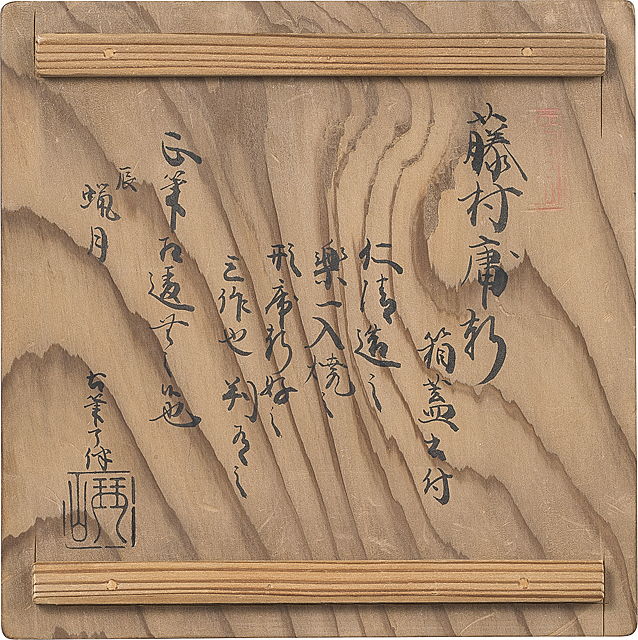 藤村庸軒
箱蓋書付
仁清造之
樂一入焼之
形庸軒好之
三作也判有之
正筆無之候也
辰
蝋月
古筆了伴
琴山